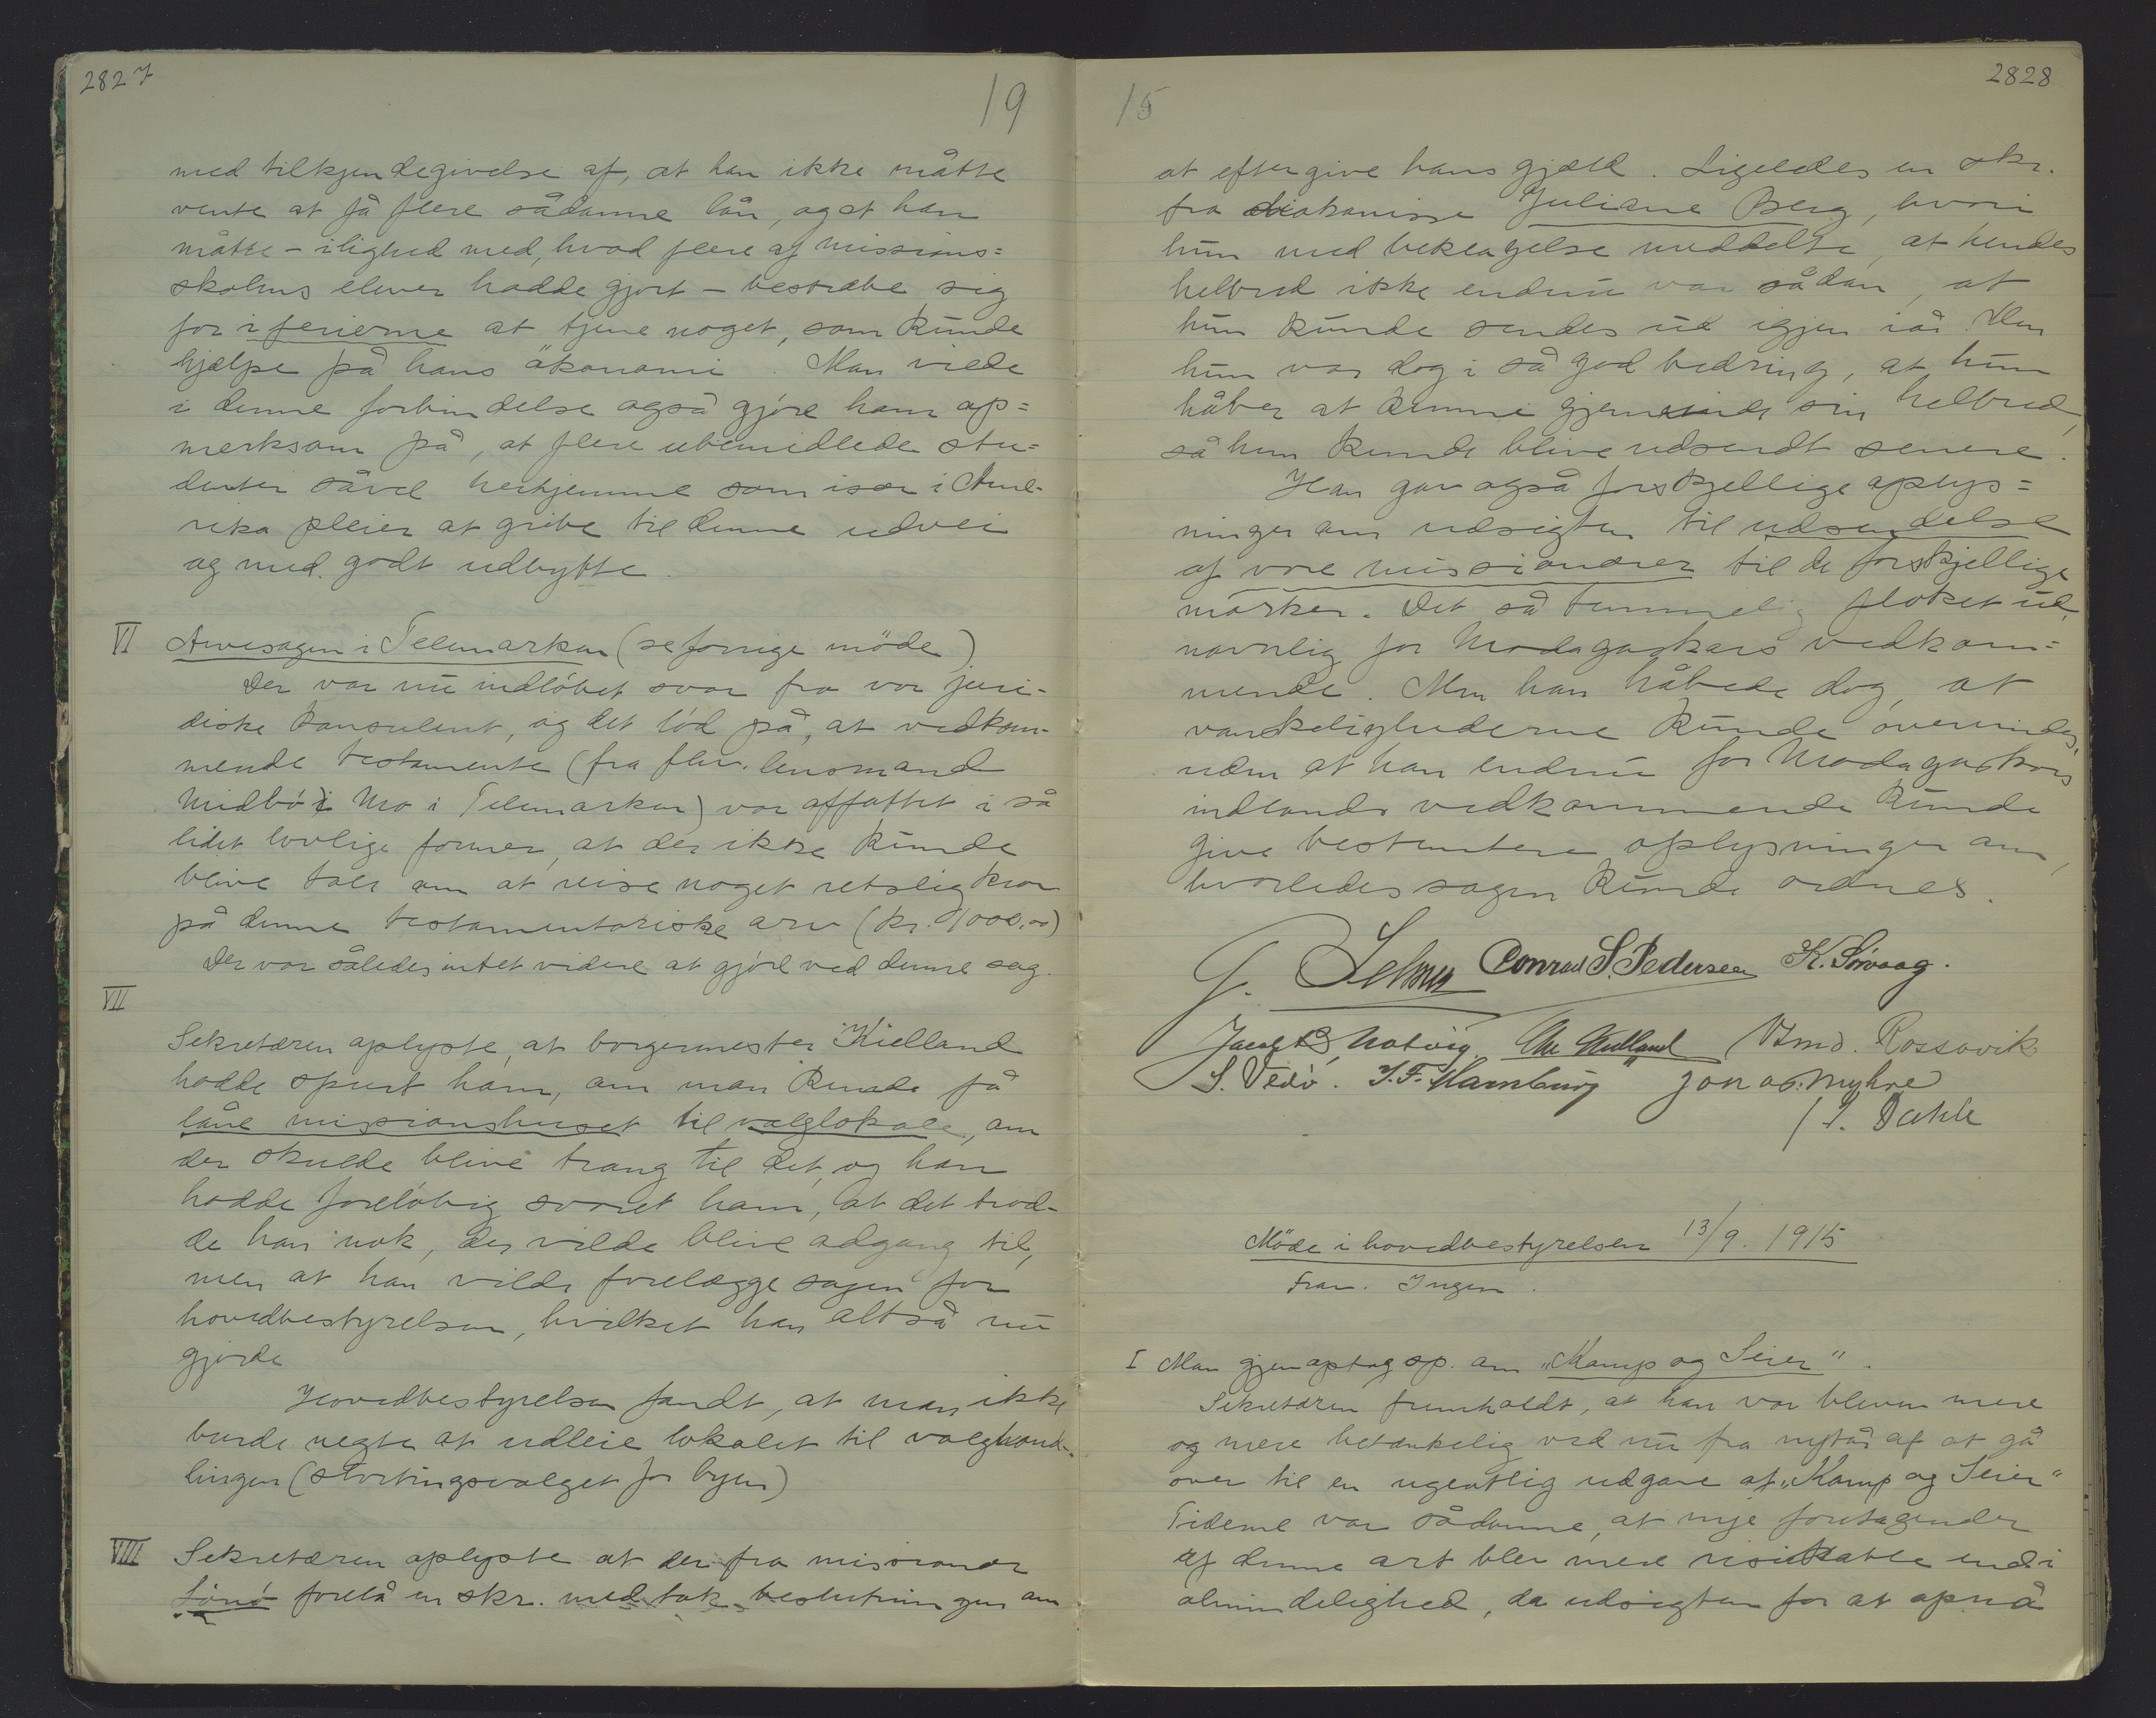 2827
19
med tilkjendegivelse af, at han ikke måtte
vente at få flere sådanne lån, og at han
måtte – ilighed med, hvad flere af missions=
skolens elever hadde gjort – bestræbe sig
for i ferierne at tjene noget, som kunde
hjælpe på hans økonomi. Man vilde
i denne forbindelse også gjøre ham op=
merksom på, at flere ubemidlede stu=
denter såvel herhjemme som især i Ame-
rika pleier at gribe til denne udvei
og med godt udbytte.
VI Arvesagen i Telemarken (se forrige møde)
Der var nu indløbet svar fra vor juri-
diske konsulent, og det lød på, at vedkom-
mende testamente (fra fhv. lensmand
Midbø i Mo i Telemarken) var affattet i så
lidet lovlige former, at der ikke kunde
blive tale om at reise noget retslig krav
på denne testamentariske arv (kr. 1000.00)
Der var således intet videre at gjøre ved denne sag.
VII
Sekretæren oplyste, at borgermester Kielland
hadde spurt ham, om man kunde få
låne missionshuset til valglokale, om
der skulde blive trang til det, og han
hadde foreløbig svaret ham, at det trod-
de han nok, der vilde blive adgang til,
men at han vilde forelægge sagen for
hovedbestyrelsen, hvilket han altså nu
gjorde
Hovedbestyrelsen fandt, at man ikke
burde negte at udleie lokalet til valghand-
lingen (stortingsvalget for byen)
VIII Sekretæren oplyste at der fra missionær
Lønø forelå en skr. med tak beslutningen om
15
2828
at eftergive hans gjæld. Ligeledes en skr.
fra diakonisse Juliane Berg, hvori
hun med beklagelse meddelte, at hendes
helbred ikke endnu var sådan, at
hun kunde sendes ud igjen iår. Men
hun var dog i så god bedring, at hun
håber at kunne gjenvinde sin helbred,
så hun kunde blive udsendt senere.
Han gav også forskjellige oplys=
ninger om udsigten til udsendelse
af vore missionærer til de forskjellige
marker. Det så temmelig floket ud,
navnlig for Madagaskars vedkom=
mende. Men han håbede dog, at
vanskelighederne kunde overvindes,
uden at han endnu for Madagaskars
indlands vedkommende kunde
give bestemtere oplysninger om,
hvorledes sagen kunde ordnes.
J. Selmer Conrad S. Pedersen K. Sørvaag.
Jacob B. Natvig. Chr Kielland Amd. Rossavik
S. Vedø. J.F. Hamburg Jon as. Myhre
/ L. Dahle
Møde i hovedbestyrelsen 13/9. 1915
Frav. Ingen.
I Man gjenoptog sp. om "Kamp og Seier".
Sekretæren fremholdt, at han var bleven mere
og mere betænkelig ved nu fra nytår af at gå
over til en ugentlig udgave af "Kamp og Seier"
Tiderne var sådanne, at nye foretagender
af denne art blev mere risikable end i
almindelighed, da udsigten for at opnå